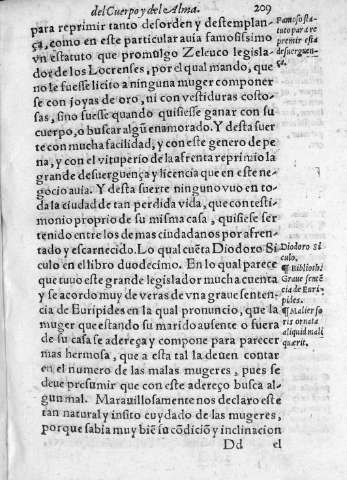 del Cuerpo y del Alma. 209
para reprimir tanto desorden y destemplan-
ça, como en este particular auia famosissimo
vn estatuto que promulgo Zeleuco legisla-
dor de los Locrenses, por el qual mando, que
no le fuesse licito a ninguna muger componer
se con joyas de oro, ni con vestiduras costo-
sas, sino fuesse quando quisiesse ganar con su
cuerpo, o buscar algũ enamorado. Y desta suer
te con mucha facilidad, y con este genero de pe
na, y con el vituperio de la afrenta reprimio la
grande desuerguença y licencia que en este ne-
gocio auia. Y desta suerte ninguno vuo en to-
da la ciudad de tan perdida vida, que con testi-
monio proprio de su misma casa, quisiese ser
tenido entre los demas ciudadanos por afren-
tado y escarnecido. Lo qual cuẽta Diodoro Si
culo en el libro duodecimo. En lo qual parece
que tuuo este grande legislador mucha cuenta
y se acordo muy de veras de vna graue senten-
cia de Euripides en la qual pronuncio, que la
muger que estando su marido ausente o fuera
de su casa se adereça y compone para parecer
mas hermosa, que a esta tal la deuen contar
en el numero de las malas mugeres, pues se
deue presumir que con este adereço busca al-
gun mal. Marauillosamente nos declaro este
tan natural y insito cuydado de las mugeres,
porque sabia muy biẽ su cõdiciõ y inclinacion
Dd el
Famoso sta
tuto para re
premir esta
desuerguen-
ça.
Diodoro Si
culo.
¶ Biblioth:
Graue sentẽ
cia de Euri-
pides.
¶ Mulier fo
ris ornata
aliquid mali
quærit.